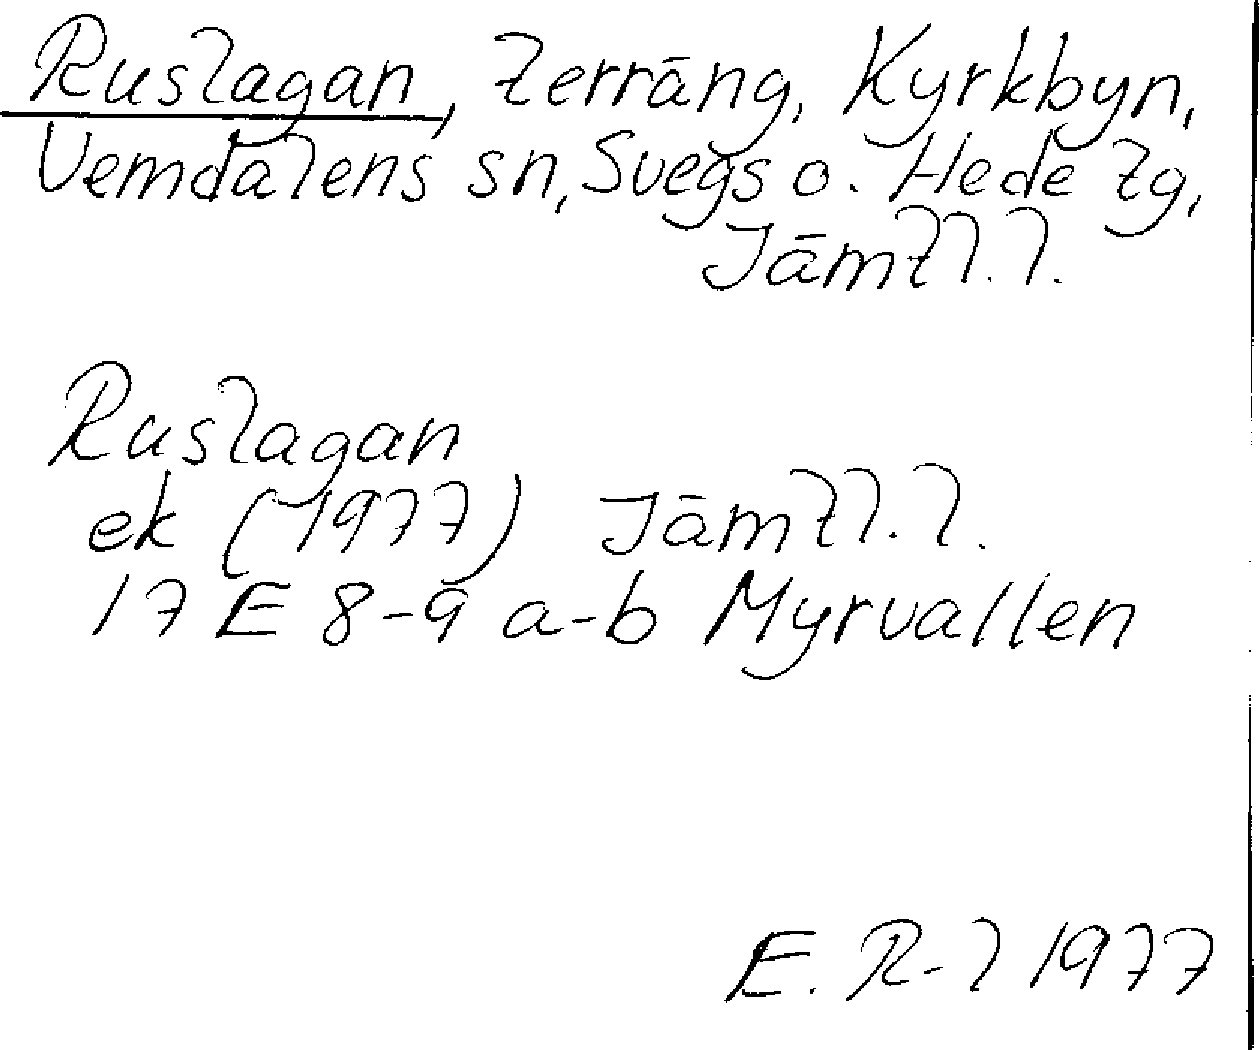 Ruslagan, terräng, Kyrkbyn,
Vemdalens sn, Svegs o. Hede tg,
Jämtl. l.
Ruslagan
ek (1977) Jämtl. l.
17 E 8-9 a-b Myrvallen
E. R-l 1977